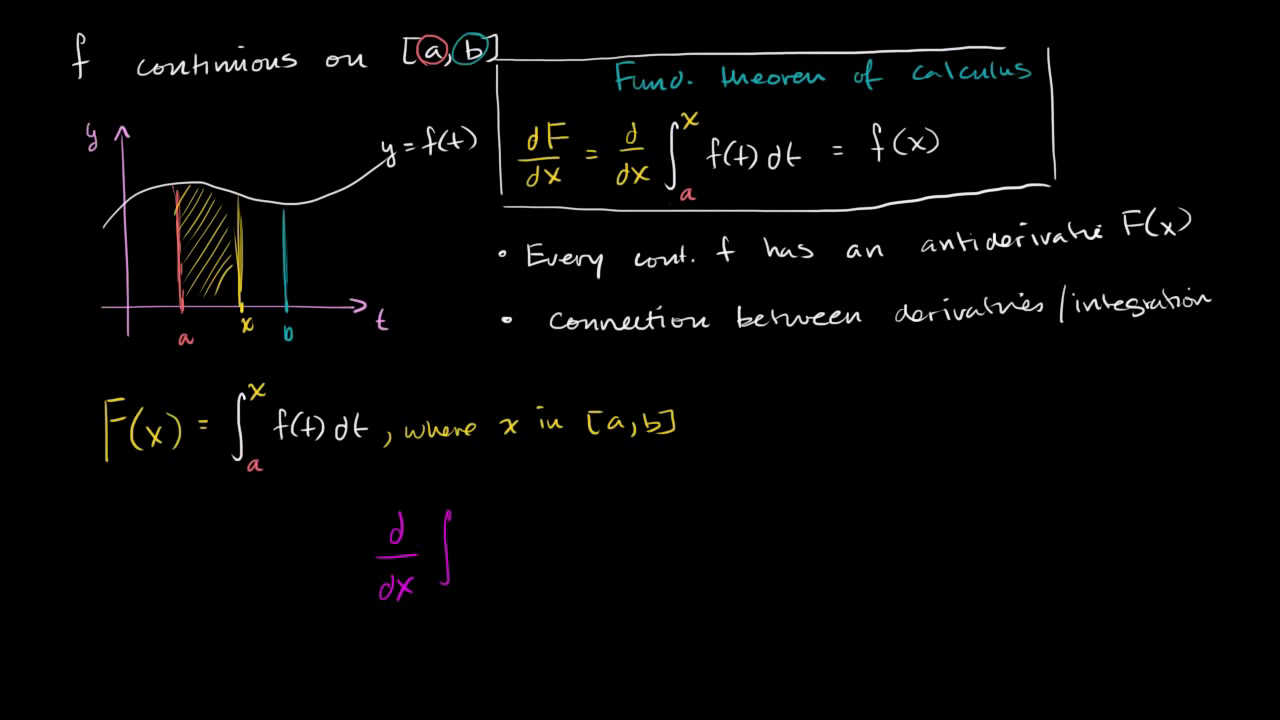 f continuous on [a, b]
Fund. theorem of calculus
dF/dx = d/dx ∫_a^x f(t) dt = f(x)
y
y = f(t)
a x b t
• Every cont. f has an antiderivative F(x)
• connection between derivatives/integration
F(x) = ∫_a^x f(t) dt, where x in [a, b]
d/dx ∫